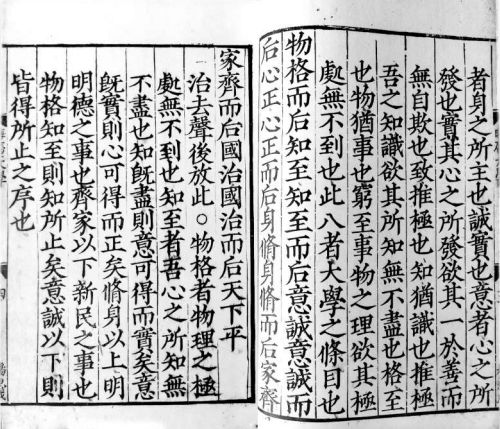 者身之所主也誠實也意者心之所
發也實其心之所發欲其一於善而
無自欺也致推極也知猶識也推極
吾之知識欲其所知無不盡也格至
也物猶事也窮至事物之理欲其極
處無不到也此八者大學之條目也
物格而后知至知至而后意誠意誠而
后心正心正而后身脩身脩而后家齊
家齊而后國治國治而后天下平
治去聲後放此○物格者物理之極
處無不到也知至者吾心之所知無
不盡也知旣盡則意可得而實矣意
旣實則心可得而正矣脩身以上明
明德之事也齊家以下新民之事也
物格知至則知所止矣意誠以下則
皆得所止之序也
四